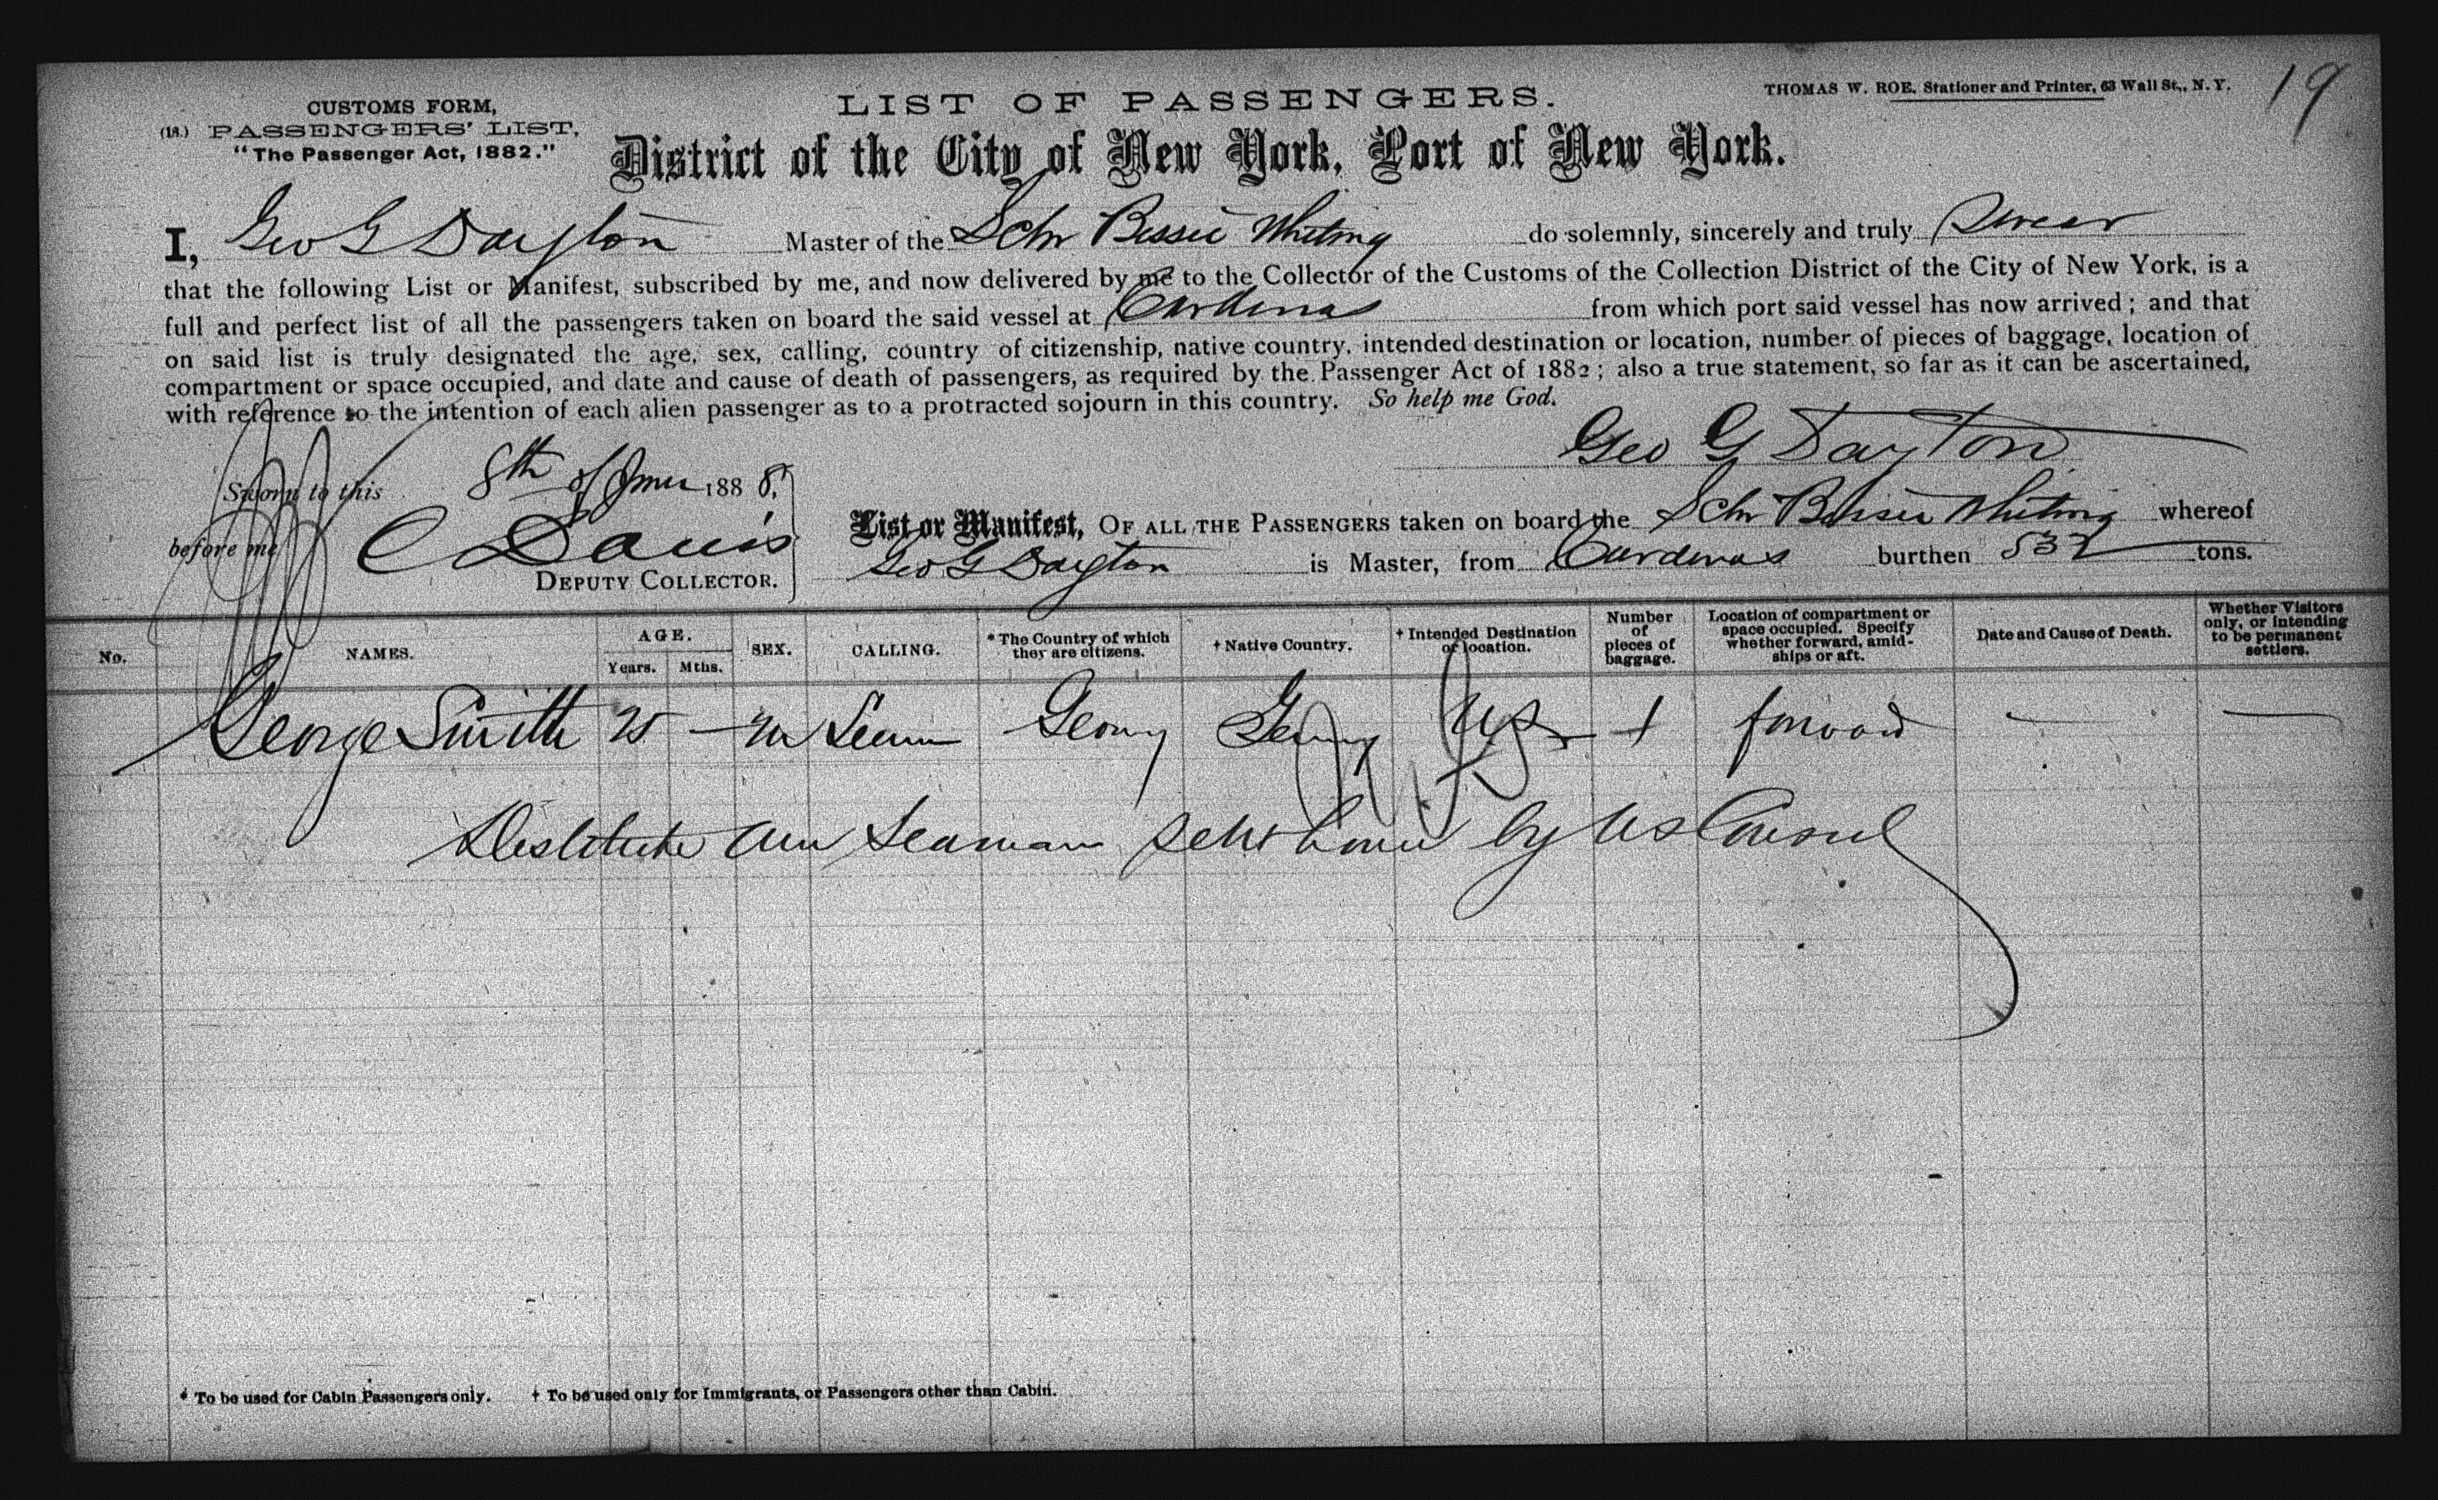 CUSTOMS FORM,
(18.) PASSENGERS' LIST,
"The Passenger Act, 1882."
LIST OF PASSENGERS.
THOMAS W. ROE, Stationer and Printer, 63 Wall St., N. Y.
19
District of the City of New York, Port of New York.
I, Geo G Dayton Master of the Schr Bessie Whiting do solemnly, sincerely and truly Swear
that the following List or Manifest, subscribed by me, and now delivered by me to the Collector of the Customs of the Collection District of the City of New York, is a
full and perfect list of all the passengers taken on board the said vessel at Cardenas from which port said vessel has now arrived; and that
on said list is truly designated the age, sex, calling, country of citizenship, native country, intended destination or location, number of pieces of baggage, location of
compartment or space occupied, and date and cause of death of passengers, as required by the Passenger Act of 1882; also a true statement, so far as it can be ascertained,
with reference to the intention of each alien passenger as to a protracted sojourn in this country. So help me God.
Geo G Dayton
Sworn to this 8th of 1888.
before me C Davis
DEPUTY COLLECTOR.
List or Manifest, OF ALL THE PASSENGERS taken on board the Schr Bessie Whiting whereof
Geo G Dayton is Master, from Cardenas burthen 532 tons.
No. NAMES. AGE. Years. Mths. SEX. CALLING. * The Country of which they are citizens. † Native Country. † Intended Destination or location. Number of pieces of baggage. Location of compartment or space occupied. Specify whether forward, amidships or aft. Date and Cause of Death. Whether Visitors only, or intending to be permanent settlers.
George Smith 25 — m Seaman Germy Germy US 1 forward — —
Destitute Am Seaman sent home by US Consul
* To be used for Cabin Passengers only. † To be used only for Immigrants, or Passengers other than Cabin.